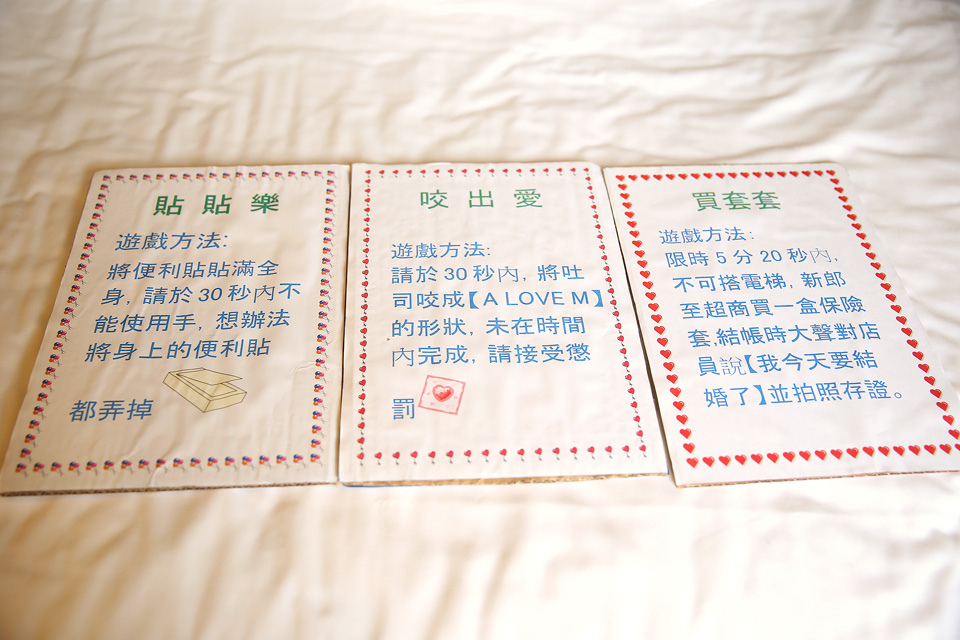 貼貼樂
遊戲方法:
將便利貼貼滿全
身, 請於30秒內不
能使用手, 想辦法
將身上的便利貼
都弄掉
咬出愛
遊戲方法:
請於30秒內, 將吐
司咬成【A LOVE M】
的形狀, 未在時間
內完成, 請接受懲
罰
買套套
遊戲方法:
限時5分20秒內,
不可搭電梯, 新郎
至超商買一盒保險
套,結帳時大聲對店
員說【我今天要結
婚了】並拍照存證。